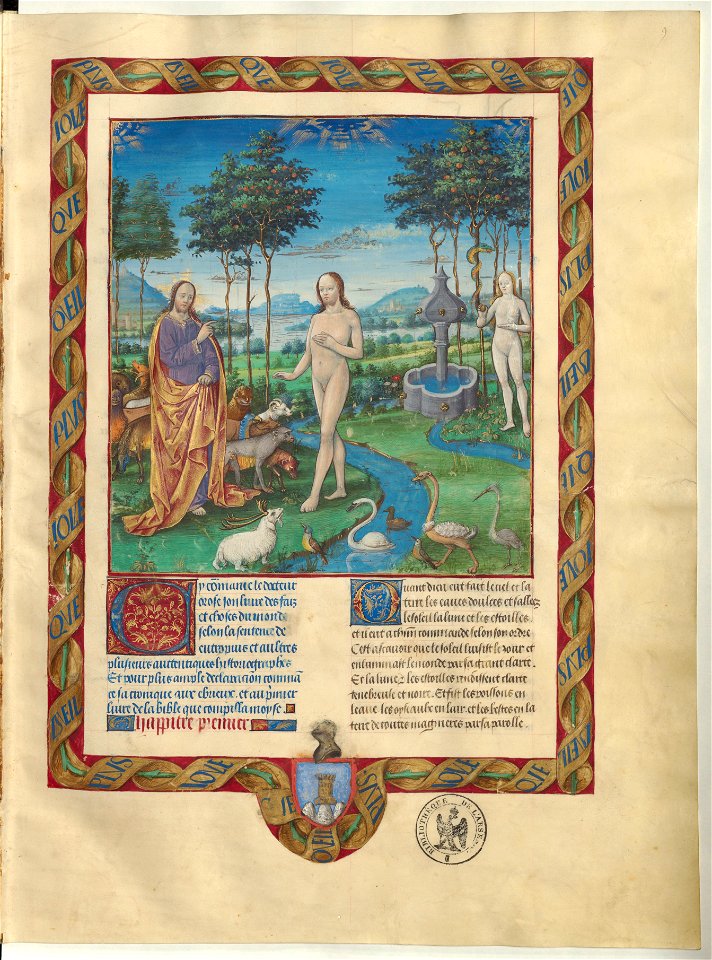 PLVS OEIL QVE IOVE PLVS OEIL QVE
IOVE
QVE
OEIL
PLVS
IOVE
QVE
OEIL
IOVE
PLVS
OEIL
QVE
IOVE
PLVS
OEIL
Cy cōmance le docteur
orose son livre des faiz
et choses du monde
selon la sentence de
eutropius et aultres
plusieurs auttentiques historiographes
Et pour plus ample declaracion commā
ce sa cronique aux ebrieux et au p̄mier
livre de la bible que composa moyse.
Chappitre premier
Quant dieu eut fait le ciel et la
terre les eaues doulces et sallees
le soleil la lune et les estoilles
et il eut a chūn commande selon son ordre
Cest assavoir que le soleil luisist le jour et
enluminast le monde par sa grant clarte
Et la lune et les estoilles rendissent clarte
tenebreuse et noire. Et fist les poissons en
leaue les oyseaulx en lair et les bestes en la
terre de toutes manieres par sa parolle.
PLVS IOVE QVE OEIL PLVS IOVE QVE
BIBLIOTHEQUE DE L'ARSE